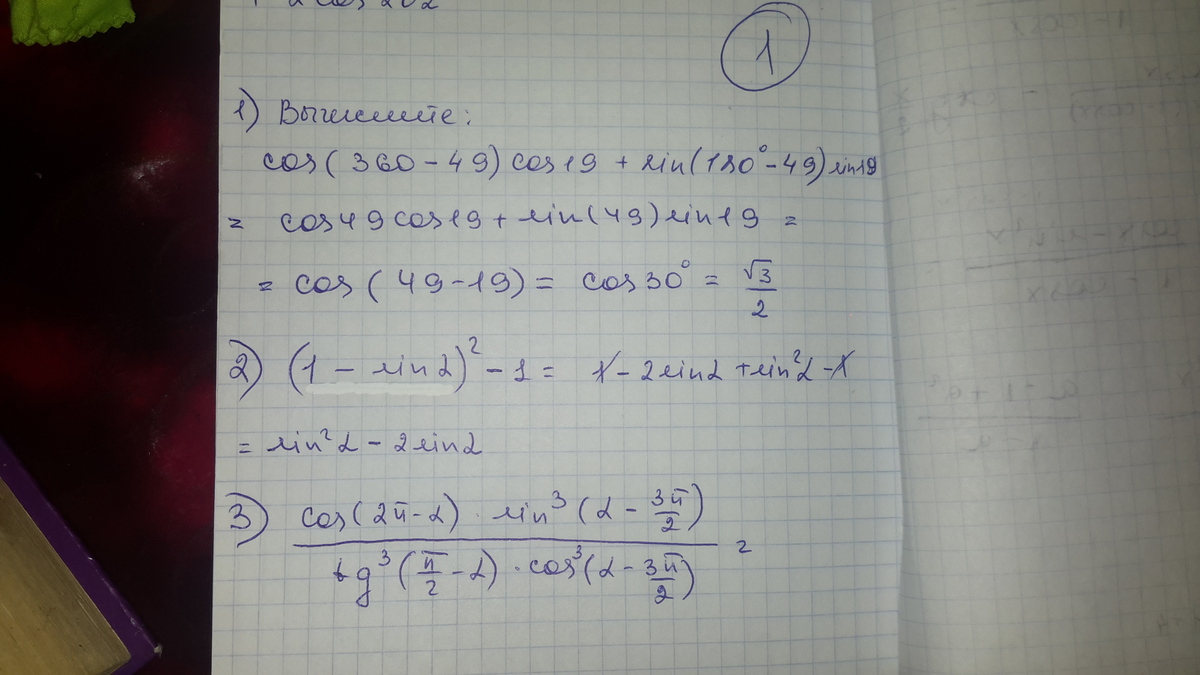 1
1) Вычислите:
cos(360-49)cos19 + sin(180°-49)sin19
= cos49cos19 + sin(49)sin19 =
= cos(49-19) = cos30° = √3/2
2) (1 - sinα)² - 1 = 1 - 2sinα + sin²α - 1
= sin²α - 2sinα
3) cos(2π-α) · sin³(α - 3π/2)
tg³(π/2 - α) · cos³(α - 3π/2) =